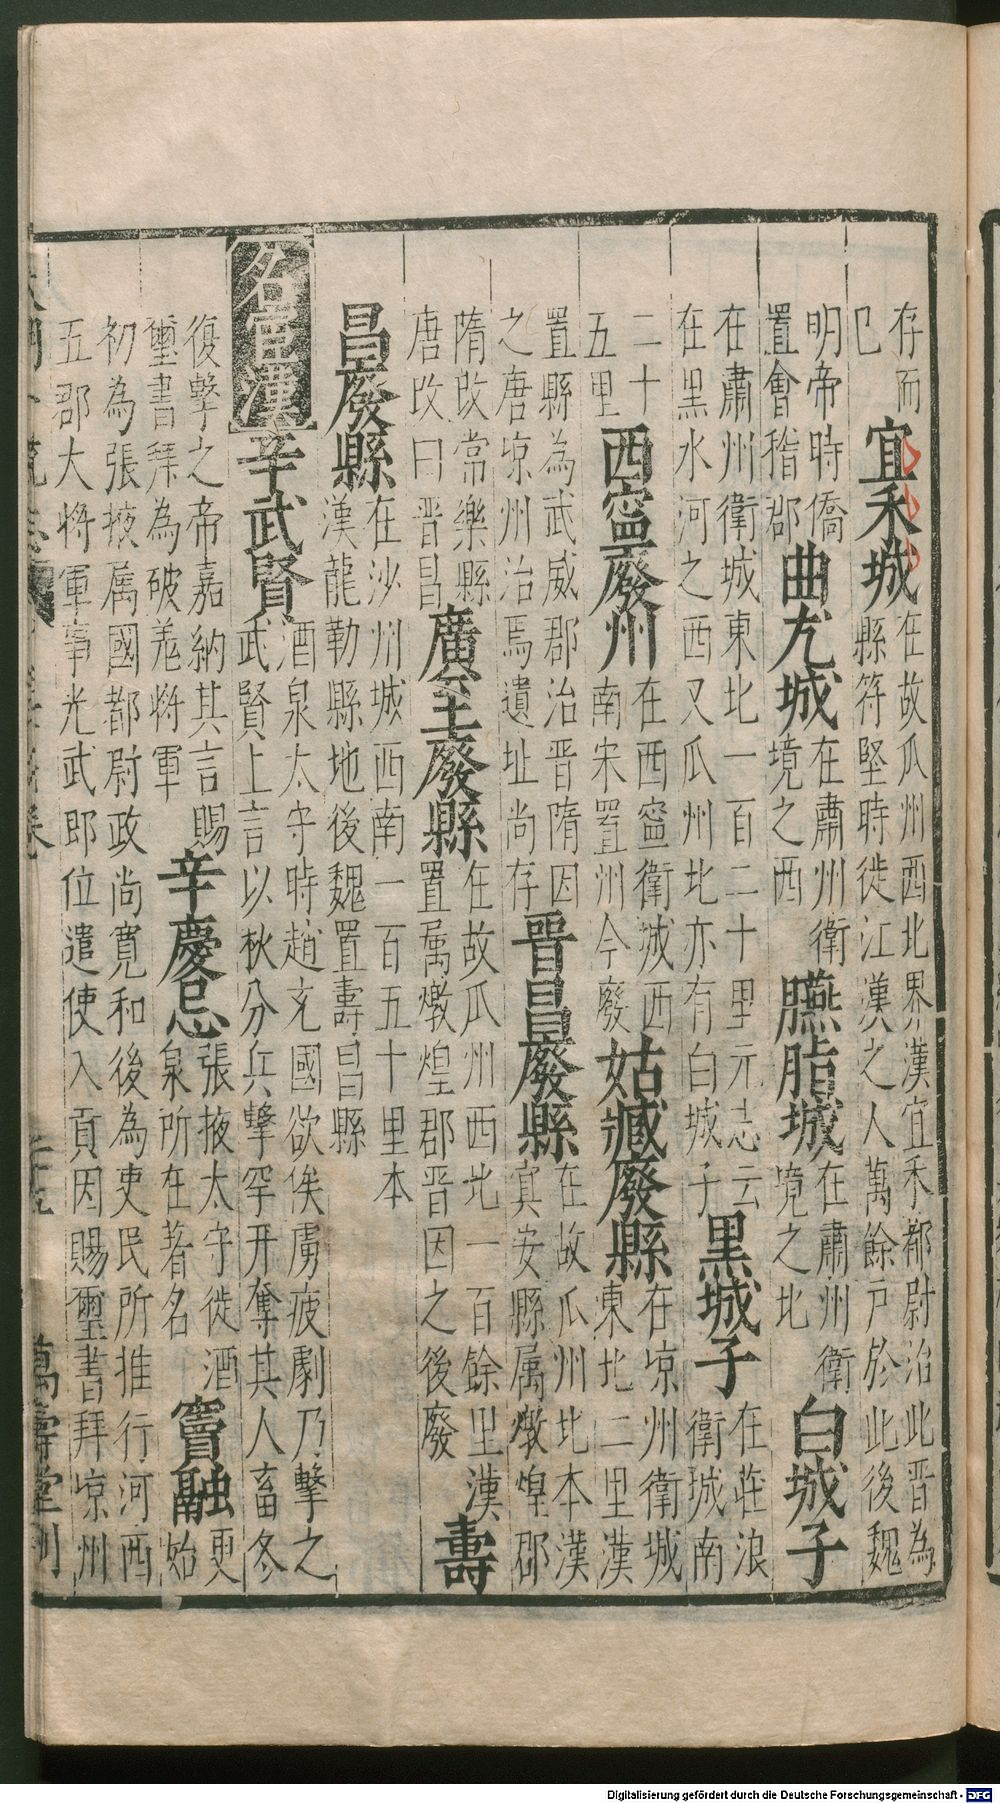 存而已宜禾城在故瓜州西北界漢宜禾都尉治此晉為縣符堅時徙江漢之人萬餘戶於此後魏
明帝時僑置會稽郡曲尤城在肅州衛境之西臙脂城在肅州衛境之北白城子
在肅州衛城東北一百二十里元志云在黑水河之西又瓜州北亦有白城子黑城子在莊浪衛城南
二十五里西寧廢州在西寧衛城西南宋置州今廢姑臧廢縣在凉州衛城東北二里漢
置縣為武威郡治晉隋因之唐凉州治焉遺址尚存晉昌廢縣在故瓜州北本漢寘安縣属燉煌郡
隋改常樂縣唐改曰晉昌廣至廢縣在故瓜州西北一百餘里漢置属燉煌郡晉因之後廢壽
昌廢縣在沙州城西南一百五十里本漢龍勒縣地後魏置壽昌縣
名宦漢辛武賢酒泉太守時趙充國欲俟虜疲劇乃擊之武賢上言以秋分兵擊罕幵奪其人畜冬
復擊之帝嘉納其言賜璽書拜為破羗將軍辛慶忌張掖太守徙酒泉所在著名竇融更始
初為張掖属國都尉政尚寬和後為吏民所推行河西五郡大將軍事光武即位遣使入貢因賜璽書拜凉州
大明一統志 二十五 萬壽堂刊
Digitalisierung gefördert durch die Deutsche Forschungsgemeinschaft - DFG